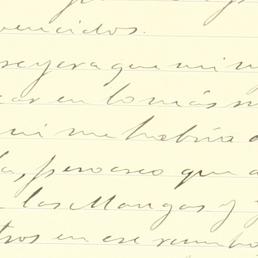 vencidos.
creyera que mi m
car en lo más m
ni me habría a
la, pero creo que a
las Mangas y
tros en ese rumbo